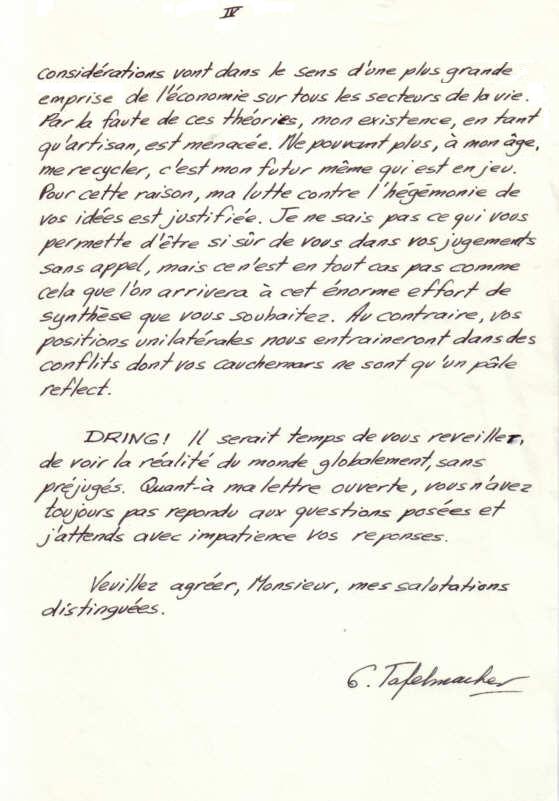 IV
considérations vont dans le sens d'une plus grande
emprise de l'économie sur tous les secteurs de la vie.
Par la faute de ces théories, mon existence, en tant
qu'artisan, est menacée. Ne pouvant plus, à mon âge,
me recycler, c'est mon futur même qui est en jeu.
Pour cette raison, ma lutte contre l'hégémonie de
vos idées est justifiée. Je ne sais pas ce qui vous
permette d'être si sûr de vous dans vos jugements
sans appel, mais ce n'est en tout cas pas comme
cela que l'on arrivera à cet énorme effort de
synthèse que vous souhaitez. Au contraire, vos
positions unilatérales nous entraineront dans des
conflits dont vos cauchemars ne sont qu'un pâle
reflect.
DRING! Il serait temps de vous reveiller,
de voir la réalité du monde globalement, sans
préjugés. Quant-à ma lettre ouverte, vous n'avez
toujours pas repondu aux questions posées et
j'attends avec impatience vos reponses.
Veuillez agréer, Monsieur, mes salutations
distinguées.
G. Tafelmacher